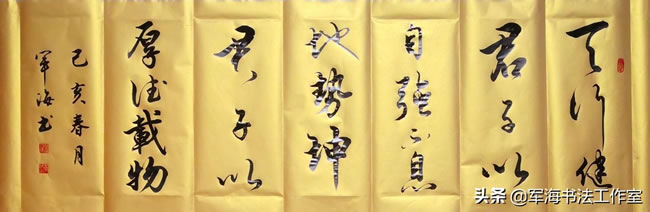 天行健
君子以
自强不息
地势坤
君子以
厚德載物
己亥春月
军海书
头条@军海书法工作室